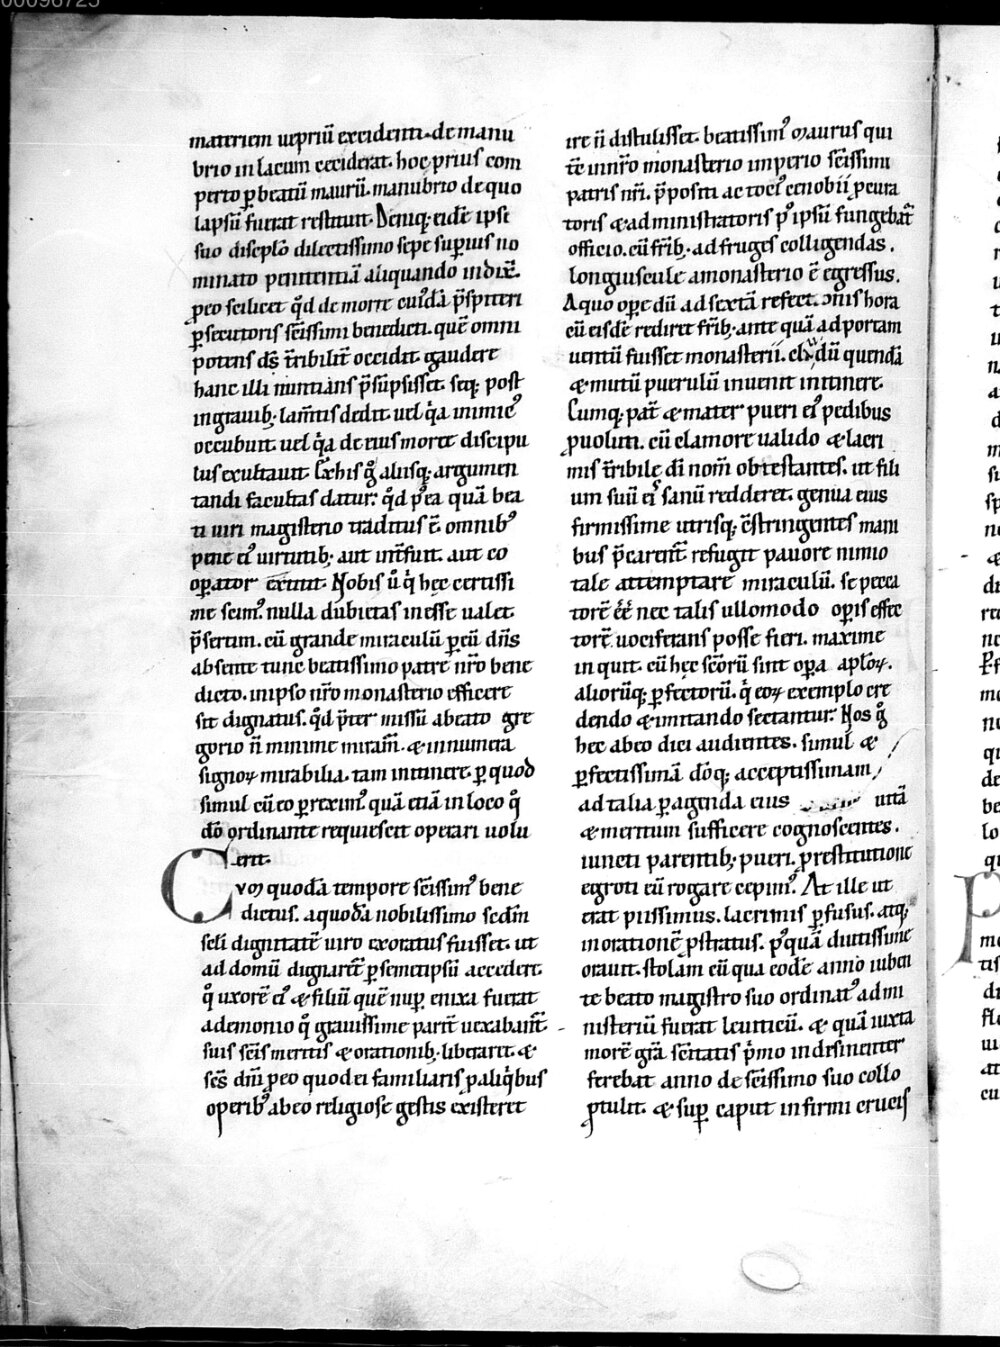 materiem uepriū excidenti. de manu
brio in lacum ceciderat. hoc prius com
perto ꝑ beatū maurū. manubrio de quo
lapsū fuerat restituit. Deniq; eidē ipse
suo discip̄lo dilectissimo sepe suꝑius no
minato penitentiā aliquando indix̄.
ꝓ eo scilicet qd̄ de morte cuiusdā p̄sƀiteri
ꝑsecutoris sc̄issimi benedicti. quē omni
potens ds̄ t̄ribilit̄ occidit. gaudere
hanc illi nuntians p̄sūpsisset. seq; post
in grauib; lam̄tis dedit. uel q̇a inimic9
occubuit. uel q̇a de eius morte discipu
lus exultauit. Ex his g̊ aliisq; argumen
tandi facultas datur: qd̄ p9ea quā bea
ti uiri magisterio traditus ē. omnib9
pene ei9 uirtutib; aut int̄fuit. aut co
oꝑator extitit. Nobis ū q̇ hec certissi
me scim9. nulla dubietas inesse ualet.
p̄sertim. cū grande miraculū ꝑ eū dn̄s
absente tunc beatissimo patre nr̄o bene
dicto. in ipso nr̄o monasterio efficere
sit dignatus. qd̄ p̄ter missū a beato gre
gorio n̄ minime miram̄. & innumera
signoꝝ mirabilia. tam in itinere. ꝑ quod
simul cū eo ꝑrexim9 quā etiā in loco q̊
dō ordinante requiescit operari uolu
erit.
Cum quodā tempore sc̄issim9 bene
dictus. a quodā nobilissimo sedm̄
seli dignitatē uiro exoratus fuisset. ut
ad domū dignaret̄ ꝑ semetipsū accedere.
q̊ uxorē ei9 & filiū quē nuꝑ enixa fuerat
a demonio q̊ grauissime parit̄ uexabant̄
suis sc̄is meritis & orationib; liberaret. &
sc̄s dn̄i ꝓ eo quod ei familiaris ꝓ aliq̇bus
operib9 ab eo religiose gestis existeret
ire n̄ distulisset. beatissim9 maurus qui
tc̄ in nr̄o monasterio imperio sc̄issimi
patris nr̄i. p̄positi ac toci9 cenobii ꝓcura
toris & administratoris p9 ipsū fungebat̄
officio. cū fr̄ib; ad fruges colligendas.
longiuscule a monasterio ē egressus.
A quo oꝑe dū ad sextā refectionis hora
cū eisdē rediret fr̄ib; ante quā ad portam
uentū fuisset monasterii. dū quendā
& mutū puerulū inuenit in itinere.
Cumq; pat̄ & mater pueri ei9 pedibus
ꝓuoluti. cū clamore ualido & lacri
mis t̄ribile dī nom̄ obtestantes. ut fili
um suū eis sanū redderet. genua eius
firmissime utrisq; c̄stringentes mani
bus p̄carent̄ refugit pauore nimio
tale attemptare miraculū. se pecca
torē ēē nec talis ullomodo oꝑis effec
torē uociferans posse fieri. maxime
inquit. cū hec sc̄orū sint oꝑa aplōꝝ.
aliorūq; ꝑfectorū. q̇ eoꝝ exemplo cre
dendo & imitando sectantur. Nos g̊
hec ab eo dici audientes. simul &
ꝑfectissimā dōq; acceptissimam
ad talia ꝑagenda eius uitā
& meritum sufficere cognoscentes.
iuncti parentib; pueri. ꝓ restitutione
egroti eū rogare cepim9. At ille ut
erat piissimus. lacrimis ꝑfusus. atq;
in orationē ꝓstratus. p9quā diutissime
orauit. stolam cū qua eodē anno iuben
te beato magistro suo ordinat9 ad mi
nisterium fuerat leuiticū. & quā iuxta
morē grā sc̄itatis p̄mo indesinenter
ferebat anno de sc̄issimo suo collo
ꝓtulit. & suꝑ caput infirmi crucis